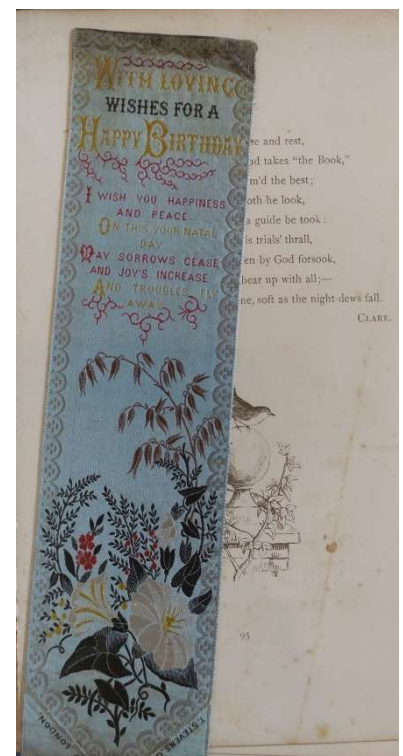 WITH LOVING
WISHES FOR A
HAPPY BIRTHDAY
I WISH YOU HAPPINESS
AND PEACE
ON THIS YOUR NATAL
DAY
MAY SORROWS CEASE
AND JOY'S INCREASE
AND TROUBLES FLY
AWAY.
T. STEVENS
LONDON.
se and rest,
takes "the Book,"
m'd the best;
oth he look,
a guide be took:
is trials' thrall,
en by God forsook,
bear up with all;—
ne, soft as the night-dews fall.
CLARE.
95